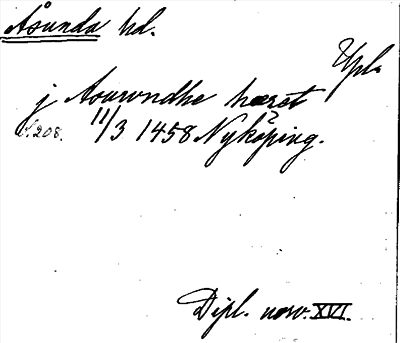 Åsunda hd.
Upl.
j Aswndhe hæret
S. 208. 11/3 1458 Nyköping.
Dipl. norv. XVI.